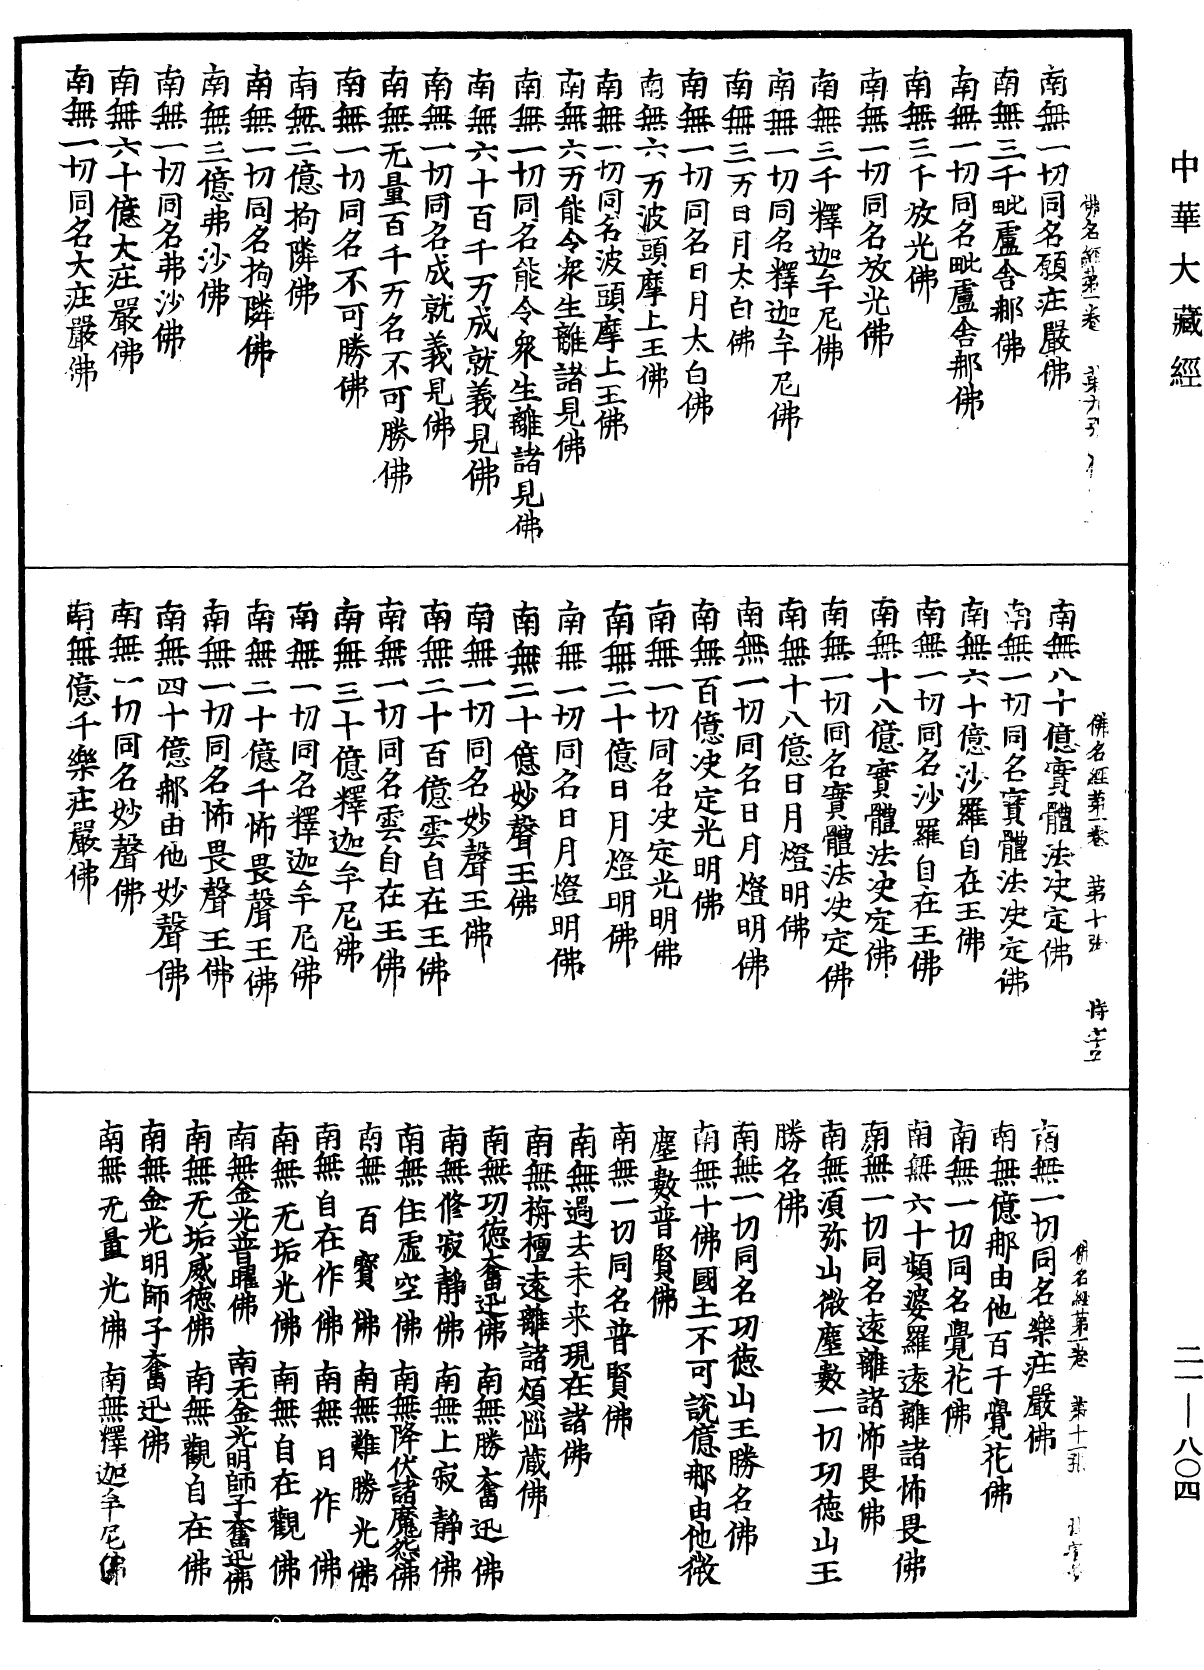 中華大藏經
南無一切同名願庄嚴佛
南無三千毗盧舍那佛
南無一切同名毗盧舍那佛
南無三千放光佛
南無一切同名放光佛
南無三千釋迦牟尼佛
南無一切同名釋迦牟尼佛
南無三万日月太白佛
南無一切同名日月太白佛
南無六万波頭摩上王佛
南無一切同名波頭摩上王佛
南無六万能令衆生離諸見佛
南無一切同名能令衆生離諸見佛
南無六十百千万成就義見佛
南無一切同名成就義見佛
南無无量百千万名不可勝佛
南無一切同名不可勝佛
南無二億拘隣佛
南無一切同名拘隣佛
南無三億弗沙佛
南無一切同名弗沙佛
南無六十億大庄嚴佛
南無一切同名大庄嚴佛
佛名經第一卷 第十張
南無八十億實體法决定佛
南無一切同名實體法决定佛
南無六十億沙羅自在王佛
南無一切同名沙羅自在王佛
南無十八億實體法决定佛
南無一切同名實體法决定佛
南無十八億日月燈明佛
南無一切同名日月燈明佛
南無百億决定光明佛
南無一切同名决定光明佛
南無二十億日月燈明佛
南無一切同名日月燈明佛
南無二十億妙聲王佛
南無一切同名妙聲王佛
南無二十百億雲自在王佛
南無一切同名雲自在王佛
南無三十億釋迦牟尼佛
南無一切同名釋迦牟尼佛
南無二十億千怖畏聲王佛
南無一切同名怖畏聲王佛
南無四十億那由他妙聲佛
南無一切同名妙聲佛
南無億千樂庄嚴佛
佛名經第一卷 第十一張
南無一切同名樂庄嚴佛
南無億那由他百千覺花佛
南無一切同名覺花佛
南無六十頻婆羅遠離諸怖畏佛
南無一切同名遠離諸怖畏佛
南無湏弥山微塵數一切功德山王
勝名佛
南無一切同名功德山王勝名佛
南無十佛國土不可說億那由他微
塵數普賢佛
南無一切同名普賢佛
南無過去未来現在諸佛
南無栴檀遠離諸煩惱藏佛
南無功德奮迅佛 南無勝奮迅佛
南無修寂靜佛 南無上寂靜佛
南無住虛空佛 南無降伏諸魔怨佛
南無百寶佛 南無難勝光佛
南無自在作佛 南無日作佛
南無无垢光佛 南無自在觀佛
南無金光普曜佛 南无金光明師子奮迅佛
南無无垢威德佛 南無觀自在佛
南無金光明師子奮迅佛
南無无量光佛 南無釋迦牟尼佛
二一—八〇四